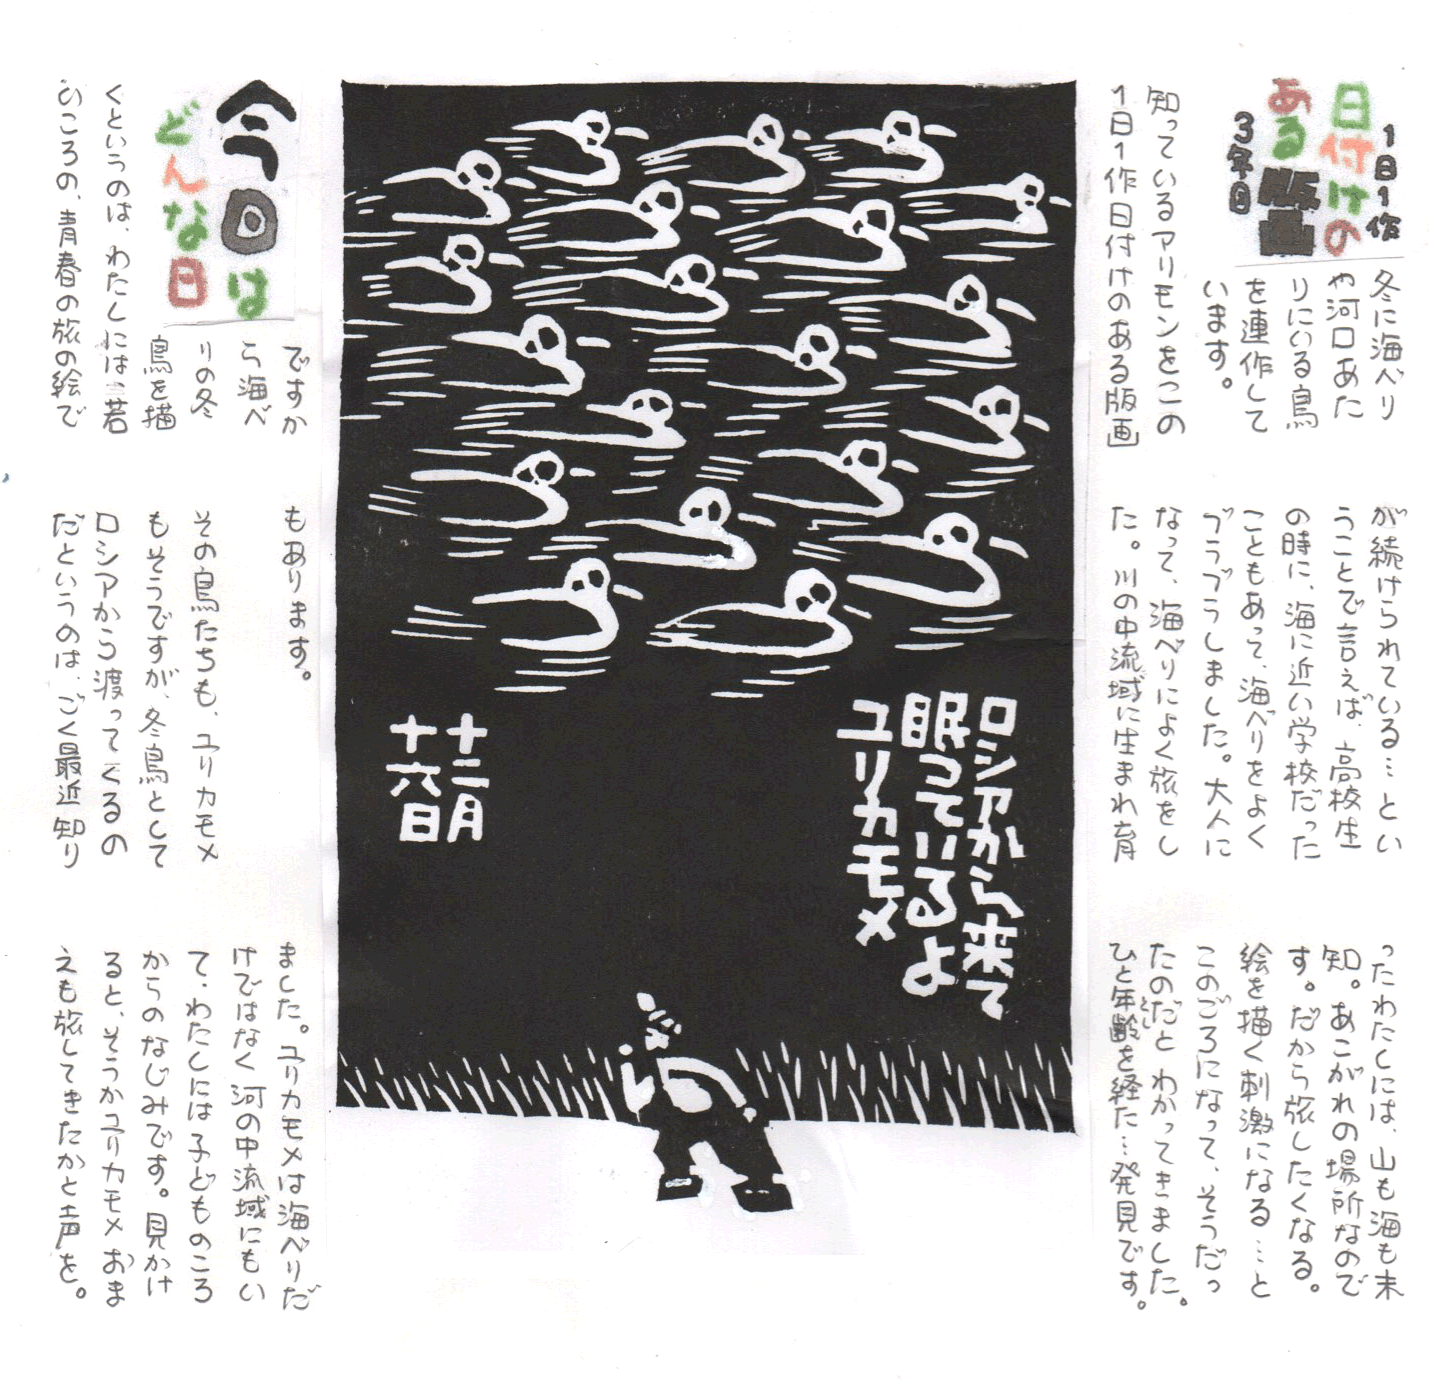 1日1作
日付けの
ある
3年目
冬に海べり
や河口あた
りにいる鳥
を連作して
います。
知っているアリモンをこの
1日1作日付けのある版画
が続けられている…とい
うことで言えば、高校生
の時に、海に近い学校だった
こともあって、海べりをよく
ブラブラしました。大人に
なって、海べりによく旅をし
た。川の中流域に生まれ育
ったわたしには、山も海も未
知。あこがれの場所なので
す。だから旅したくなる。
絵を描く刺激になる…と
このごろになって、そうだっ
たのだと わかってきました。
ひと年齢を経た…発見です。
とし
ロシアから来て
眠っているよ
ユリカモメ
十二月
十六日
今日は
どんな日
ですか
ら海べ
りの冬
鳥を描
くというのは、わたしには…若
いころの、青春の旅の絵で
もあります。
その鳥たちも、ユリカモメ
もそうですが、冬鳥として
ロシアから渡ってくるの
だというのは、ごく最近知り
ました。ユリカモメは海べりだ
けではなく河の中流域にもい
て、わたしには子どものころ
からのなじみです。見かけ
ると、そうかユリカモメおま
えも旅してきたかと声を。